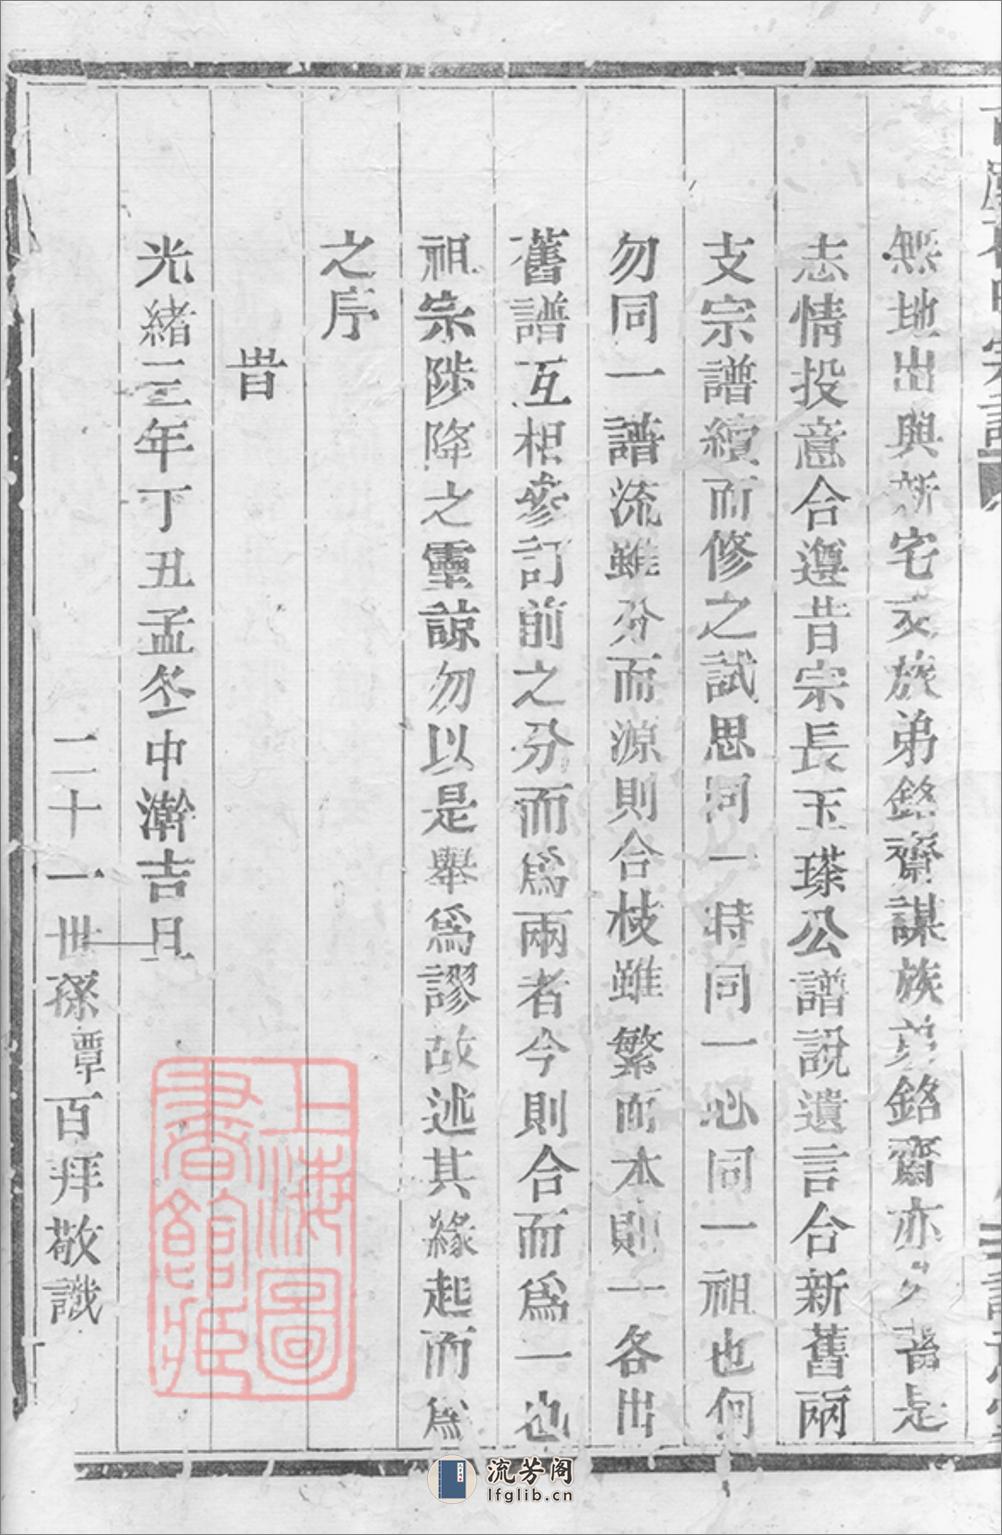 無地出與新宅支族弟銘齋謀族弟銘齋亦夕□是
志情投意合遵昔宗長玉瑹公譜說遺言合新舊兩
支宗譜續而修之試思同一時同一心同一祖也何
勿同一譜流雖分而源則合枝雖繁而本則一各出
舊譜互相參訂前之分而爲兩者今則合而爲一也
祖宗陟降之靈諒勿以是舉爲謬故述其緣起而爲
之序
旹
光緒三年丁丑孟冬中澣吉旦
二十一世孫覃百拜敬識
上海圖書館藏
流芳阁
lfglib.cn